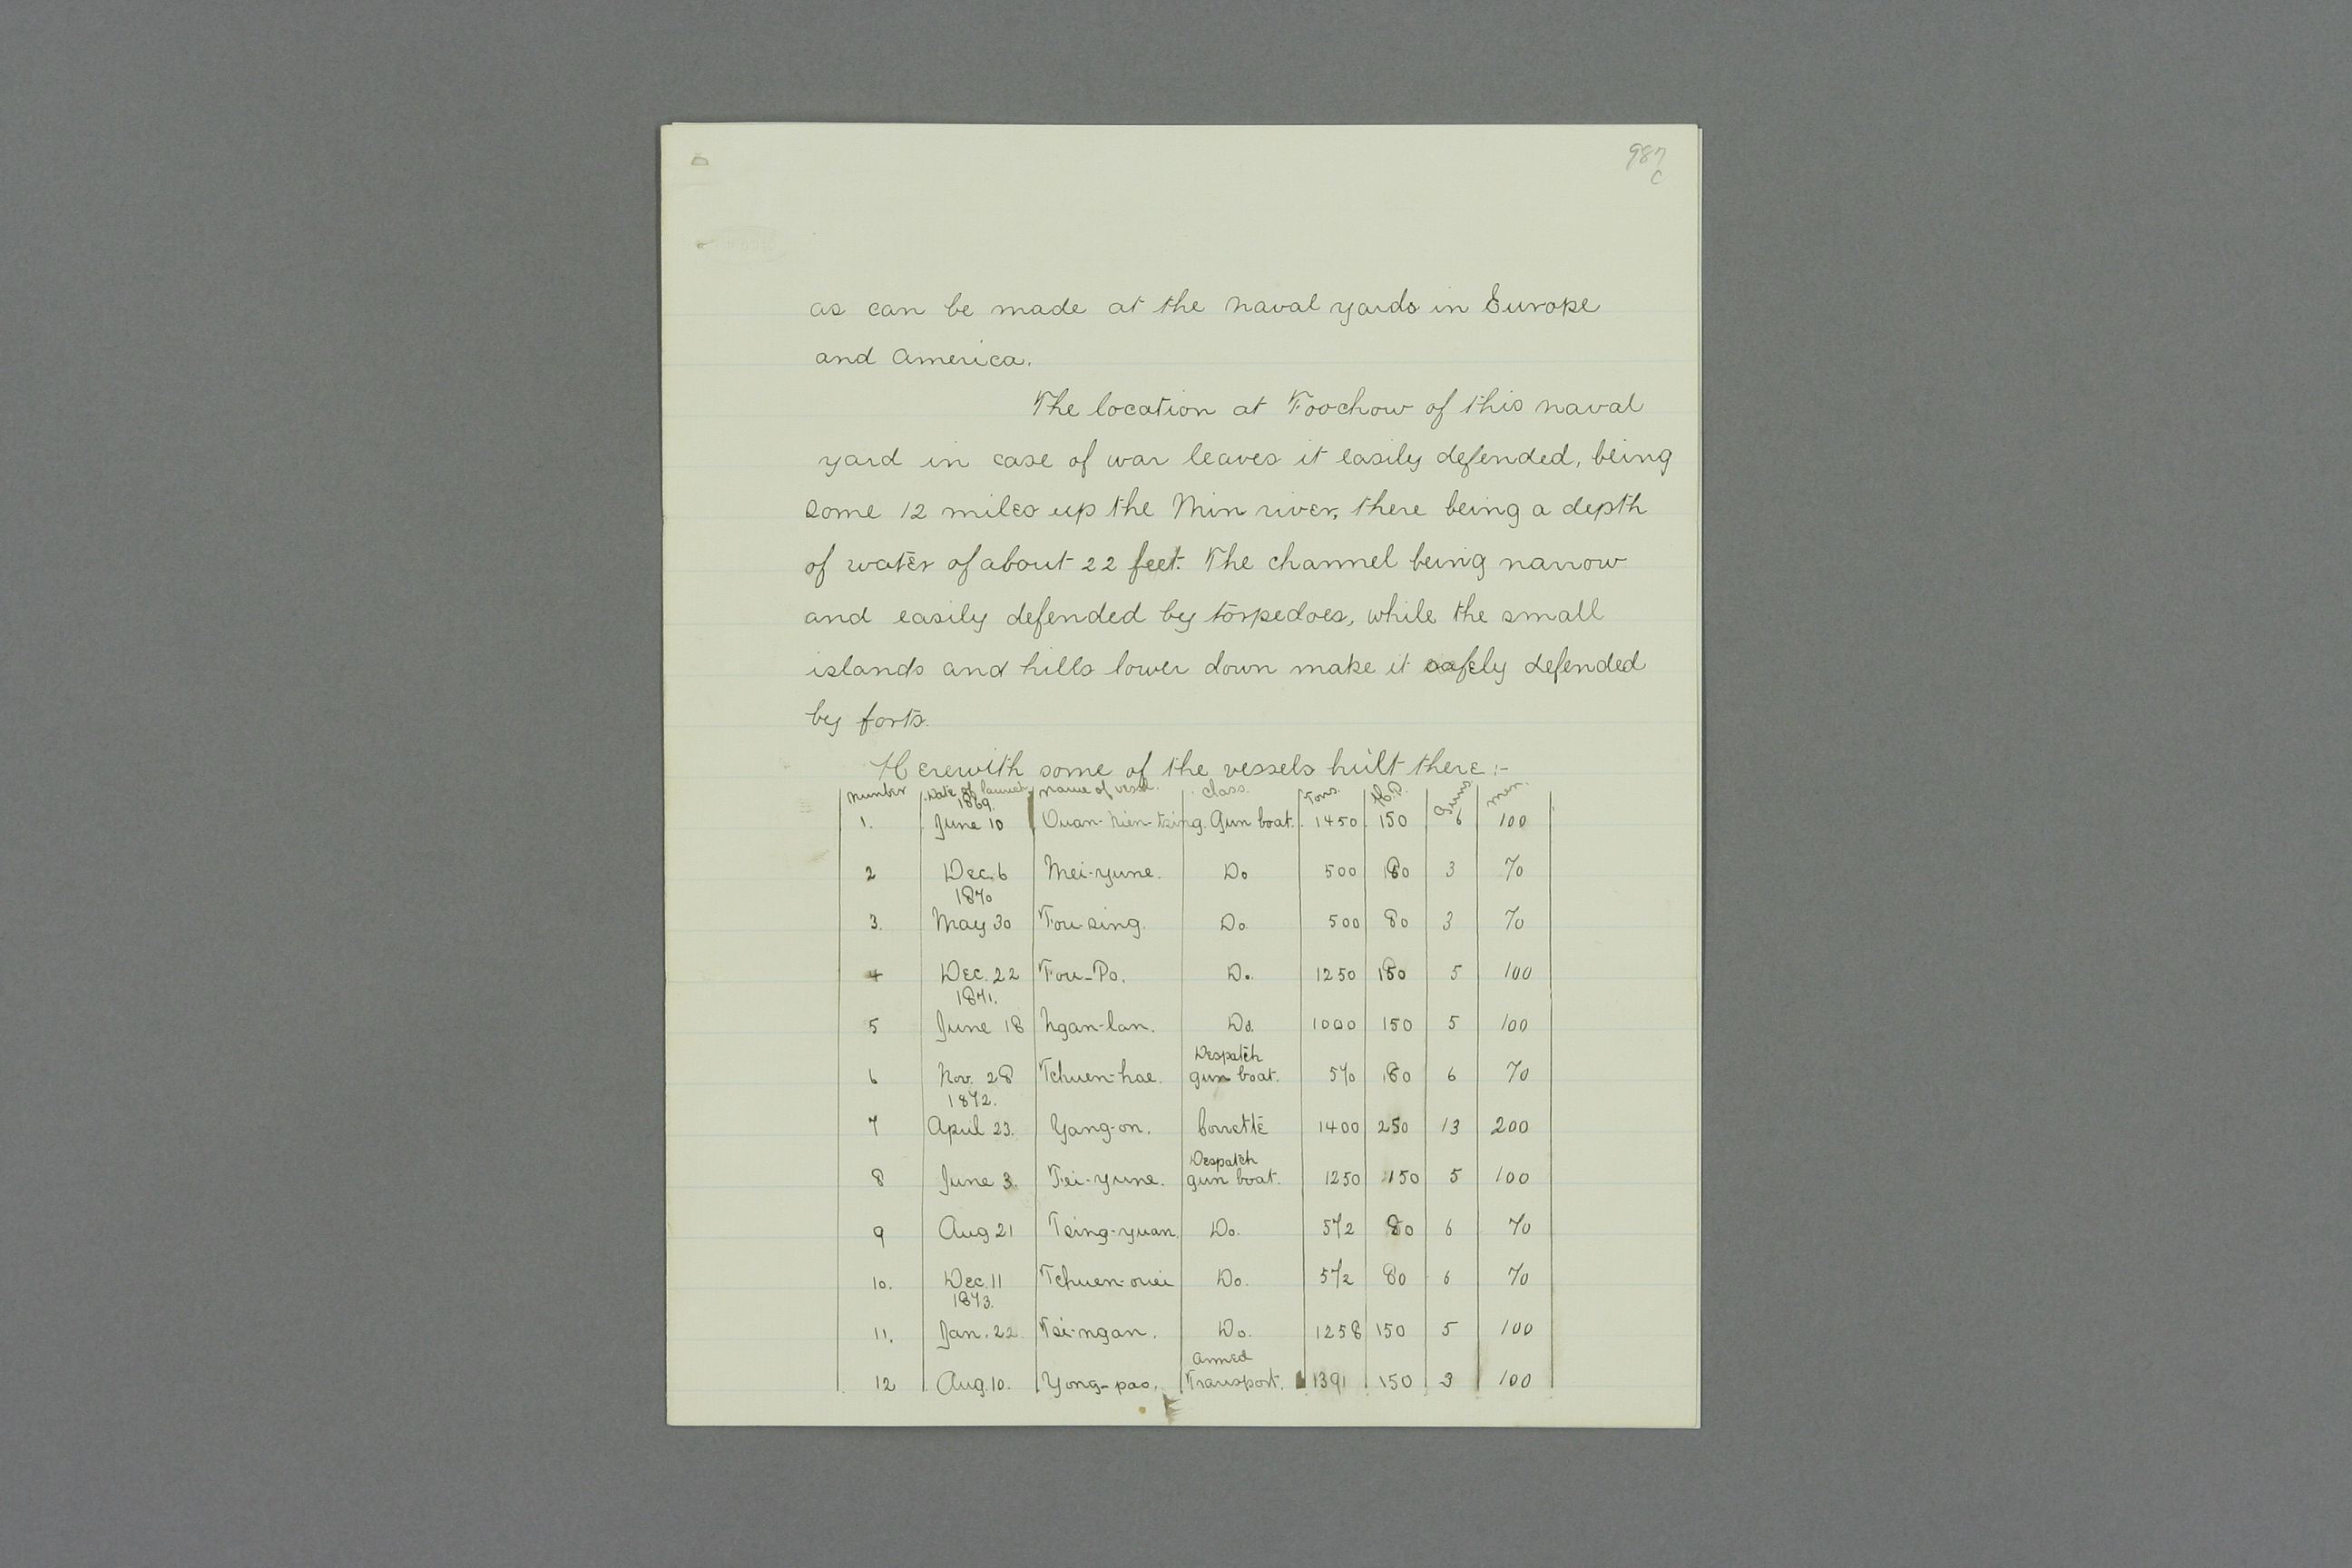 987
c
as can be made at the naval yards in Europe
and America.
The location at Foochow of this naval
yard in case of war leaves it easily defended, being
some 12 miles up the Min river, there being a depth
of water of about 22 feet. The channel being narrow
and easily defended by torpedoes, while the small
islands and hills lower down make it safely defended
by forts.
Herewith some of the vessels built there:-
Number Date of launch. Name of vessel. Class. Tons. H.P. Guns. Men.
1869.
1. June 10 Ouan-Nien-tsing. Gun boat. 1450 150 6 100
2 Dec. 6 Mei-yune. Do 500 80 3 70
1870
3. May 30 Fou-sing. Do 500 80 3 70
4 Dec. 22 Fou-Po. Do. 1250 150 5 100
1871.
5 June 18 Ngan-lan. Do. 1000 150 5 100
6 Nov. 28 Tchuen-hae. Despatch gun boat. 570 80 6 70
1872.
7 April 23. Yang-on. Corvette 1400 250 13 200
8 June 3. Fei-yune. Despatch gun boat. 1250 150 5 100
9 Aug 21 Tsing-yuan. Do. 572 80 6 70
10. Dec. 11 Tchuen-ouei Do. 572 80 6 70
1873.
11. Jan. 22. Tsi-ngan. Do. 1258 150 5 100
12 Aug. 10. Yong-pao. Armed Transport. 1391 150 3 100